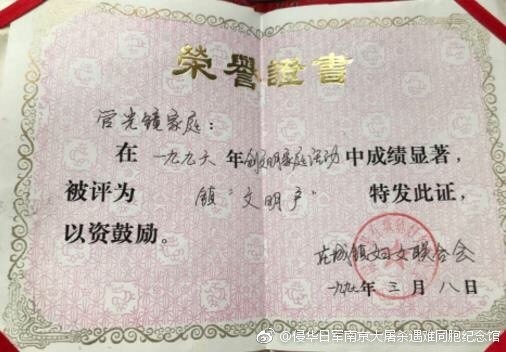 榮譽證書
官光镜家庭：
在一九九六年创文明家庭活动中成绩显著，
被评为镇“文明户”特发此证，
以资鼓励。
古城镇妇女联合会
一九九七年三月八日
@侵华日军南京大屠杀遇难同胞纪念馆